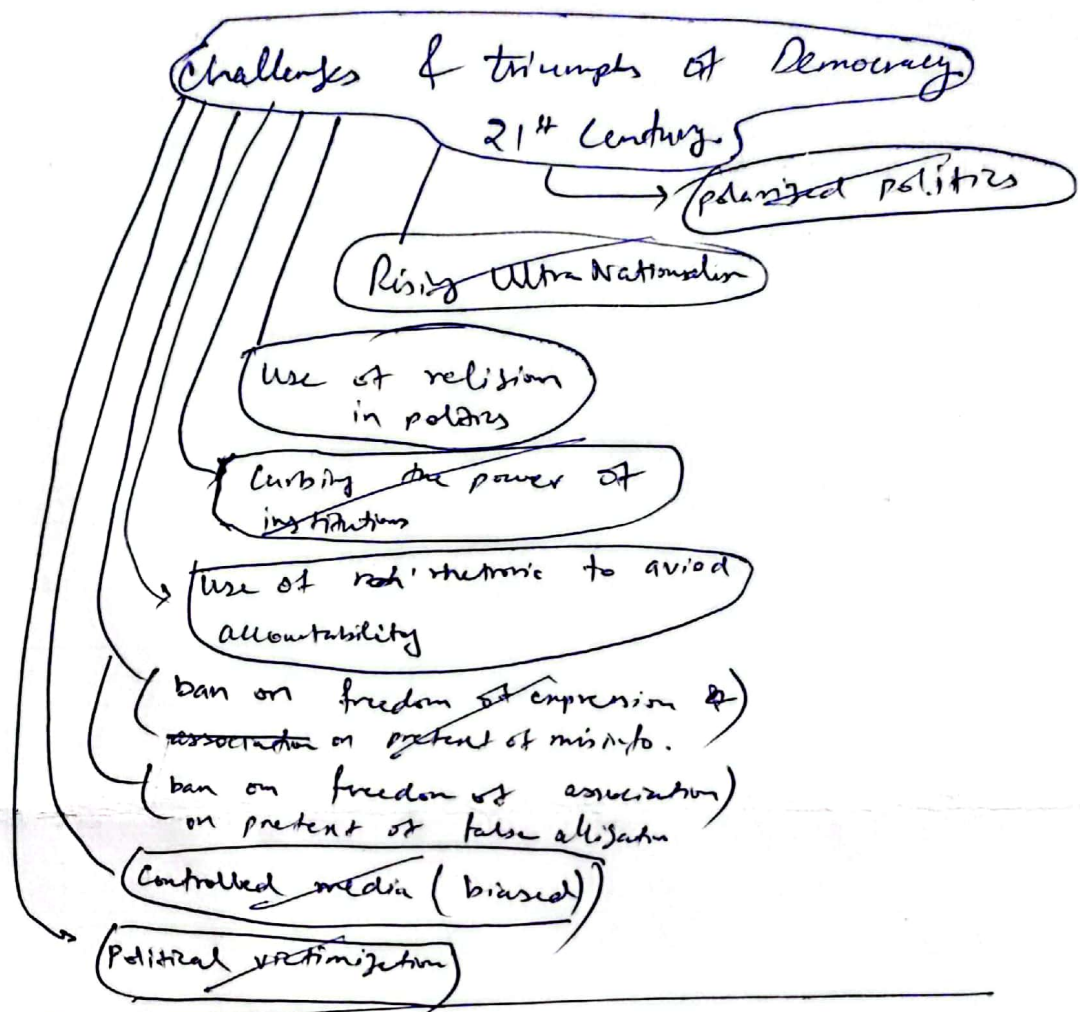 Challenges & triumphs of Democracy
21st Century.
polarized politics
Rising Ultra Nationalism
Use of religion
in politics
Curbing the power of
institutions
Use of rhetroric to aviod
accountability
ban on freedom of expression &
association on pretent of misinfo.
ban on freedom of association
on pretent of false alligation
Controlled media (biased)
Political victimization